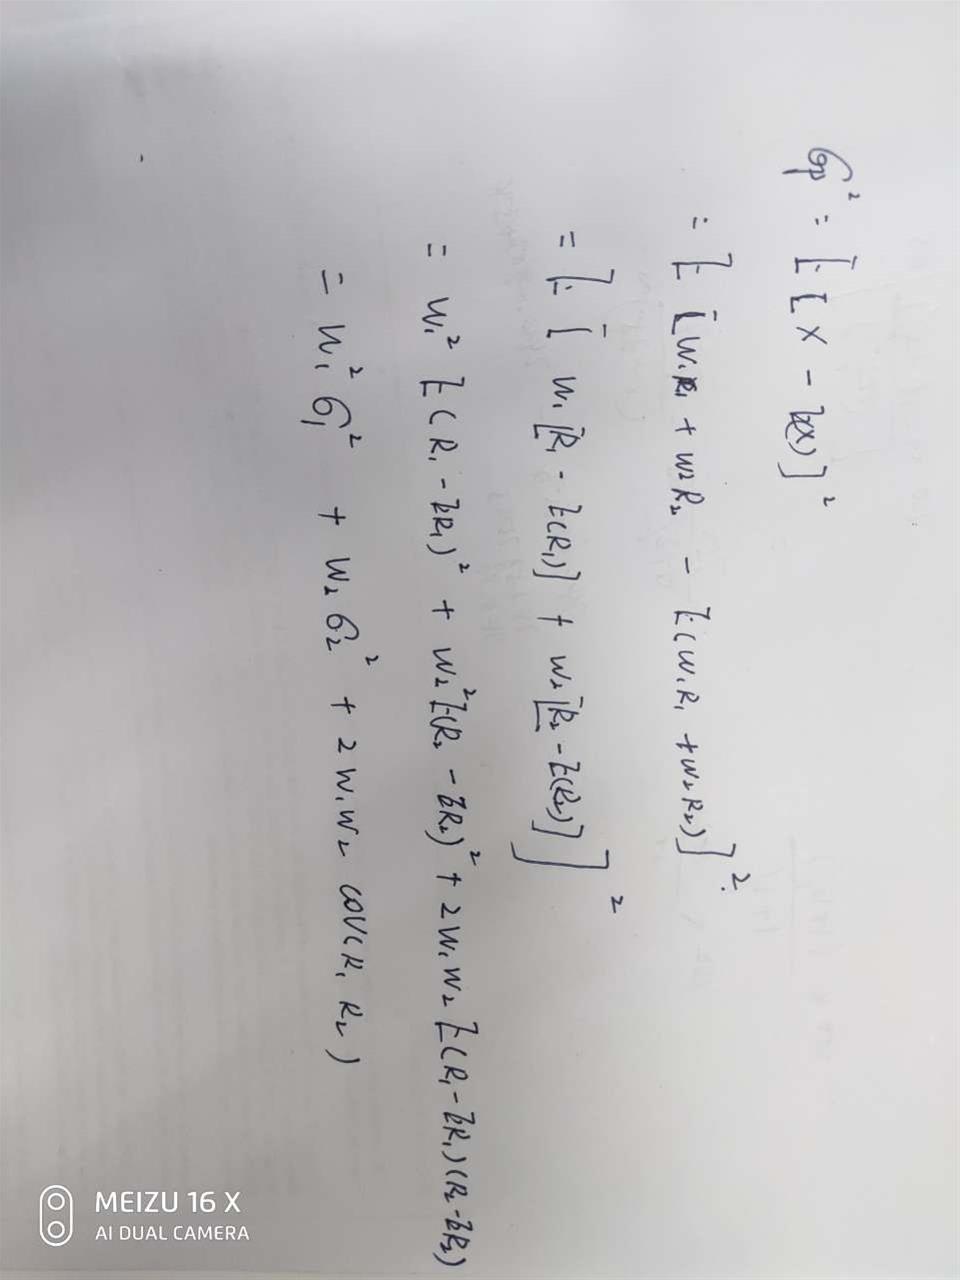 σp² = E[X - E(X)]²
= E[w₁R₁ + w₂R₂ - E(w₁R₁ + w₂R₂)]²
= E[w₁[R₁ - E(R₁)] + w₂[R₂ - E(R₂)]]²
= w₁² E(R₁ - ER₁)² + w₂² E(R₂ - ER₂)² + 2w₁w₂ E(R₁ - ER₁)(R₂ - ER₂)
= w₁²σ₁² + w₂σ₂² + 2w₁w₂ cov(R₁ R₂)
MEIZU 16 X
AI DUAL CAMERA